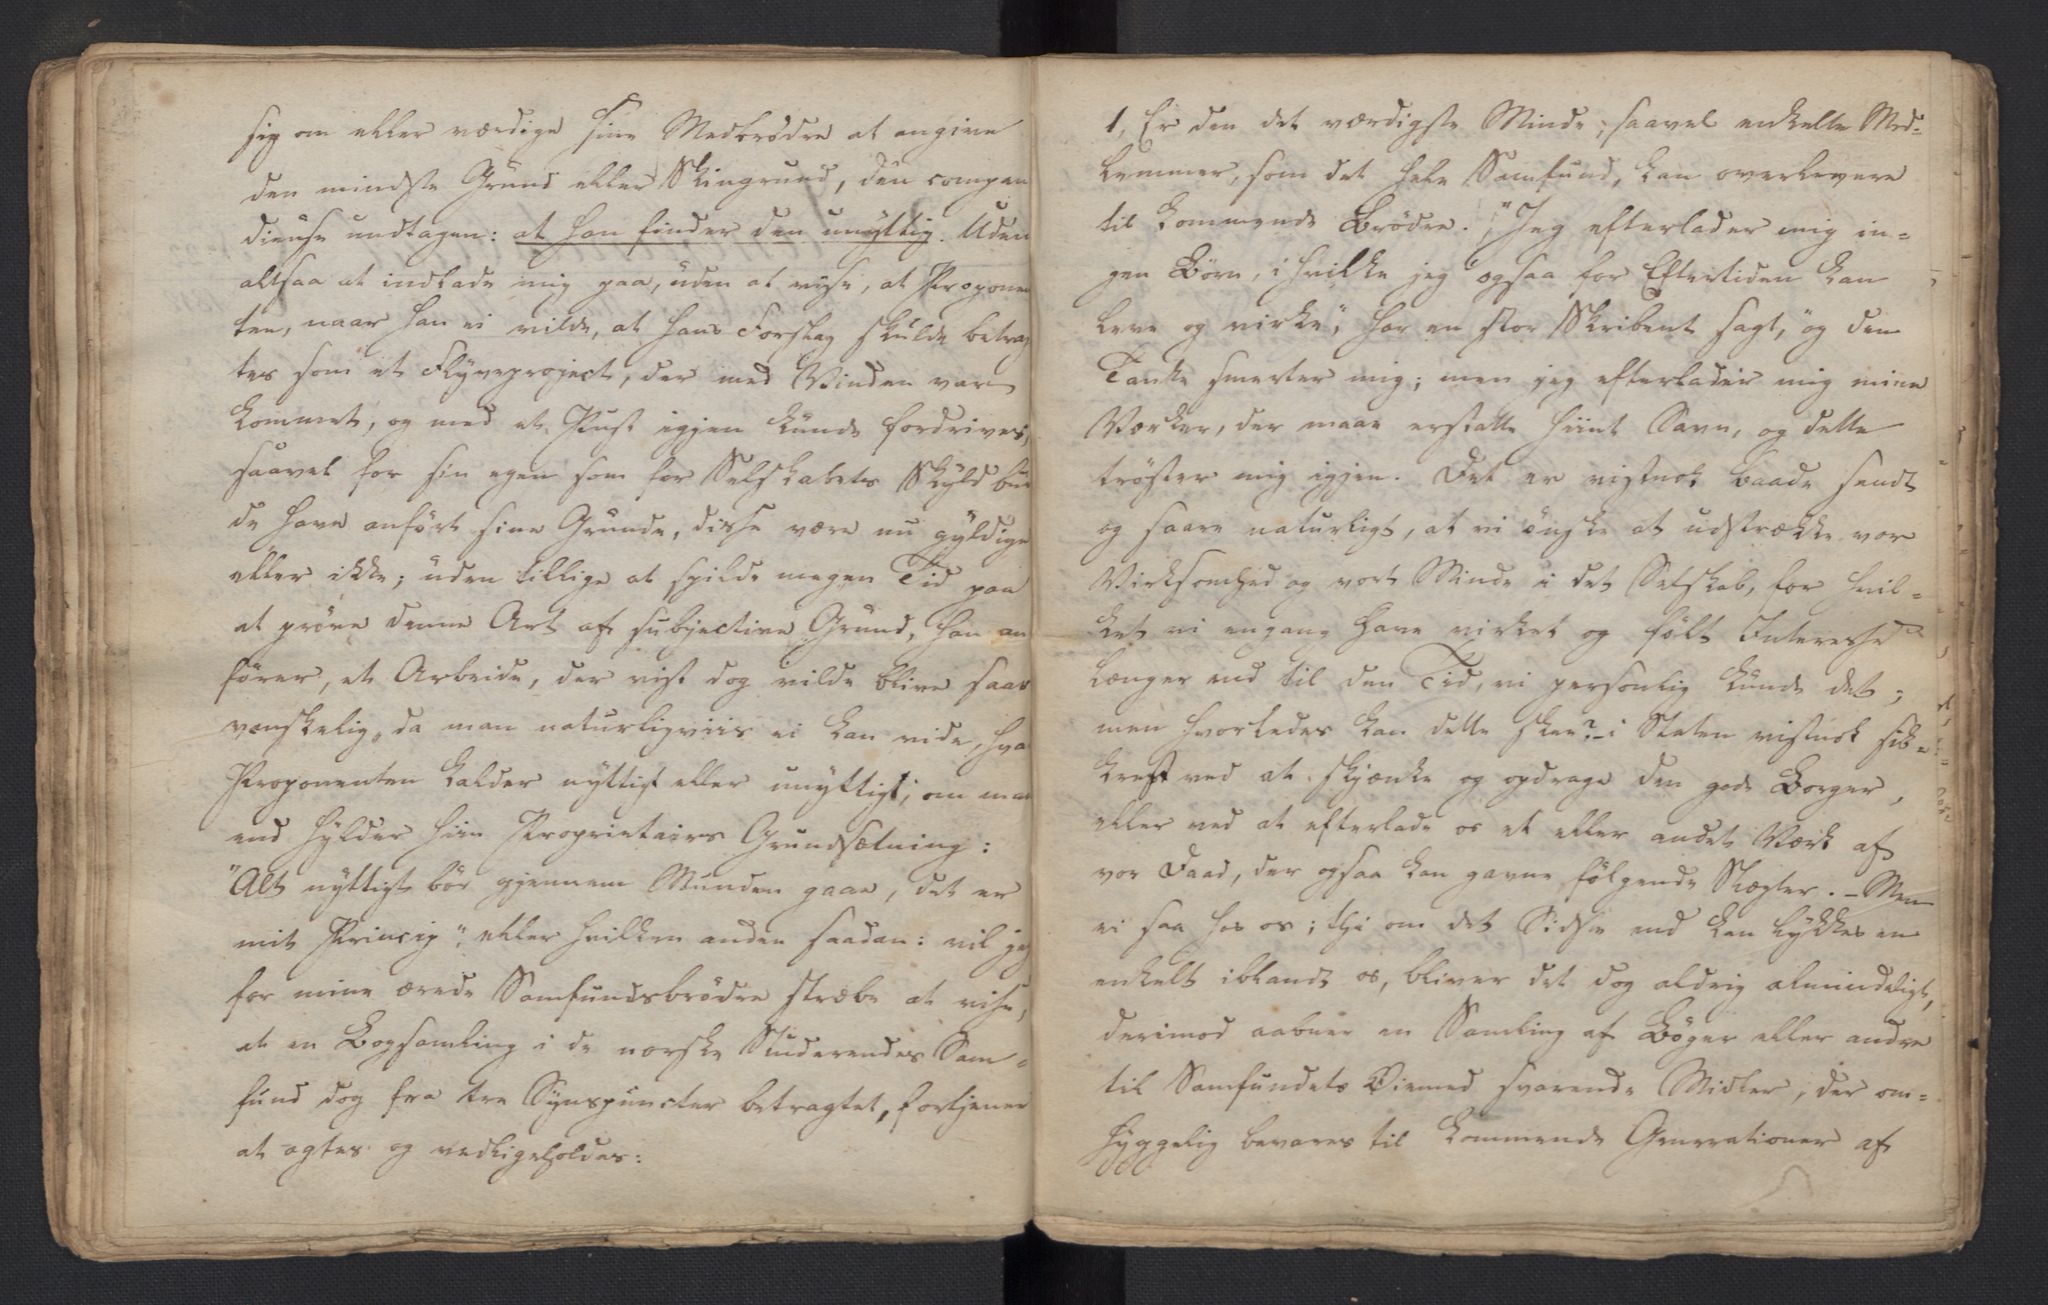 sig om eller værdige sine Medbrødre at angive
den mindste Grund eller Skingrund, den compen
dieuse undtagen: at han finder den unyttig. Uden
altsaa at indlade mig paa, uden at vise, at Propone
ten, naar han ei vilde, at hans Forslag skulde betrag
tes som et Flyveproject, der med Vinden var
kommet, og med et Pust igjen kunde fordrives,
saavel for sin egen som for Selskabets Skyld bur
de have anført sine Grunde, disse være nu gyldige
eller ikke; uden tillige at spilde megen Tid paa
at prøve denne Art af subjective Grund, han an
fører, et Arbeide, der vist dog vilde blive saar
vanskelig, da man naturligviis ei kan vide, hva
Proponenten kalder nyttigt eller unyttigt; om man
end hylder hiin Proprietairs Grundsætning:
"Alt nyttigt bör gjennem Munden gaae, det er
mit Princip", eller hvilken anden saadan: vil jeg
for mine ærede Samfundsbrödre stræbe at vise,
at en Bogsamling i de norske Studerendes Sam-
fund dog fra tre Synspuncter betragtet, fortjener
at agtes og vedligeholdes:
1, Er den det værdigste Minde, saavel enkelte Med-
lemmer, som det hele Samfund, kan overlevere
til kommende Brödre. "Jeg efterlader mig in-
gen Börn, i hvilke jeg ogsaa for Eftertiden kan
leve og virke", har en stor Skribent sagt, "og den
Tanke smerter mig; men jeg efterlader mig mine
Værker, der maae erstatte hiint Savn, og dette
tröster mig igjen. Det er vistnok baade sandt
og saare naturligt, at vi önske at udstrække vor
Virksomhed og vort Minde i det Selskab, for hvil-
ket vi engang have virket og fölt Interesse
længer end til den Tid, vi personlig kunde det;
men hvorledes kan dette skee? - i Staten vistnok sik-
krest ved at skjænke og opdrage den gode Borger,
eller ved at efterlade os et eller andet Værk af
vor Daad, der ogsaa kan gavne fölgende Slægter. - Men
ei saa hos os; thi om det Sidste end kan lykkes en
enkelt iblandt os, bliver det dog aldrig almindeligt,
derimod aabner en Samling af Böger eller andre
til Samfundets Öiemed svarende Midler, der om-
hyggelig bevares til kommende Generationer af